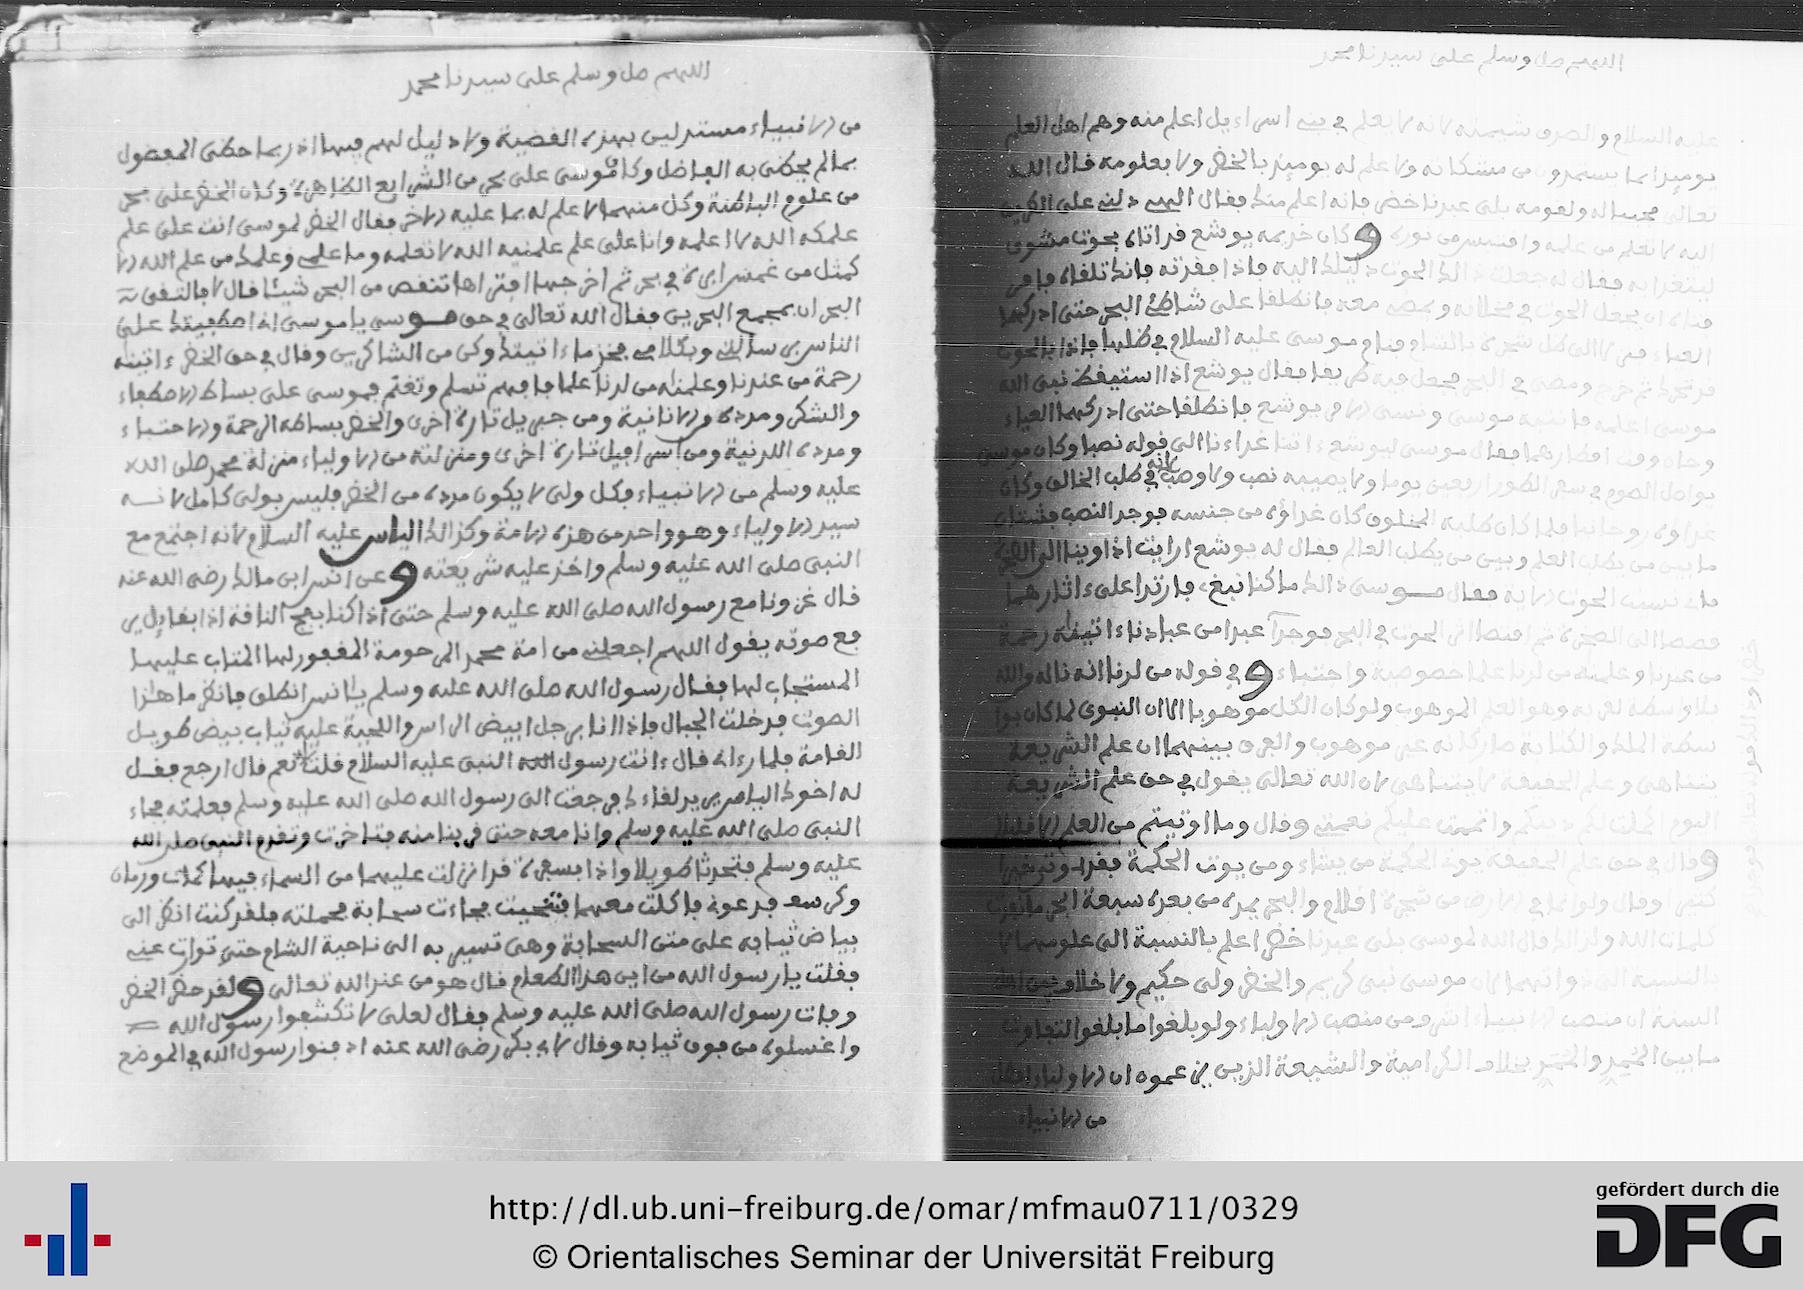 اللهم صل وسلم على سيدنا محمد
عليه السلام والصرف شيمته لانه لا يعلم في بني اسراءيل اعلم منه وهم اهل العلم
يوميذ انما يستمدون من مشكاته ولا علم له يوميذ بالخضر ولا بعلومه فقال الله
تعالى مجيبا له ولقومه بلى عبدنا خضر فانه اعلم منك فقال الهي دلني على الكريق
اليه لا تعلم من علمه واقتبس من نوره وكان خديمه يوشع فراتاه بحوت مشوي
ليتغدا به فقال له جعلت ذالك الحوت دليلك اليه فاذا فقدته فانك تلقاه فامر
فتاه ان يجعل الحوت في مخلاته ويمضي معه فانطلقا على شاطئ البحر حتى ادركهما
العياء
موسى اعلمه فانتبه موسى ونسي الامر يوشع فانطلقا حتى ادركهما العياء
وحان وقت افطارهما فقال موسى ليوشع ءاتنا غداءنا الى قوله نصبا وكان موسى
يواصل الصوم في سفر الطور اربعين يوما ولا يصيبه نصب ولا وصب لانه في طلب الخالق وكان
غداوه روحانيا فلما كان طلبه المخلوق كان غداؤه من جنسه فوجد النصب فشتان
ما بين من يطلب العلم وبين من يطلب العالم فقال له يوشع ارايت اذ اوينا الى الصخرة
فاني نسيت الحوت الاية فقال موسى ذالك ما كنا نبغ فارتدا على ءاثارهما
قصصا الى الصخرة ثم اقتصا اثر الحوت في البحر فوجدا عبدا من عبادنا ءاتيناه رحمة
من عندنا وعلمناه من لدنا علما خصوصية واجتباء وفي قوله من لدنا انه ناله والله
بلا واسطة لغيره وهو العلم الموهوب ولو كان الكل موهوبا الا ان النبوي لما كان بوا
سطة الملك والكتابة صار كانه غير موهوب والفرق بينهما ان علم الشريعة
يتناهى وعلم الحقيقة لا يتناهى لان الله تعالى يقول في حق علم الشريعة
اليوم اكملت لكم دينكم واتممت عليكم نعمتي وقال وما اوتيتم من العلم الا قليلا
وقال في حق علم الحقيقة يوتي الحكمة من يشاء ومن يوت الحكمة فقد اوتي خيرا
كثيرا وقال ولو انما في الارض من شجرة اقلام والبحر يمده من بعده سبعة ابحر ما نفدت
كلمات الله ولذالك قال الله لموسى بلى عبدنا خضر اعلم بالنسبة الى علومهما لا
بالنسبة الى ذواتهما لان موسى نبي كريم والخضر ولي حكيم ولا خلاف بين اهل
السنة ان منصب الانبياء اشرف من منصب الاولياء ولو بلغوا ما بلغوا التفاوت
ما بين الخمر والخمر بخلاف الكرامية والشيعة الذين يزعمون ان الاولياء افضل
من الانبياء
اللهم صل وسلم على سيدنا محمد
من الانبياء مستدلين بهذه القضية ولا دليل لهم فيها اذ ربما حظي المفضول
بما لم يحظى به الفاضل وكان موسى على بحر من الشرايع الظاهرة وكان الخضر على بحر
من علوم الباطنة وكل منهما لا علم له بما عليه الاخر فقال الخضر لموسى انت على علم
علمكه الله لا اعلمه وانا على علم علمنيه الله لا تعلمه وما علمي وعلمك من علم الله الا
كمثل من غمس ابرة في بحر ثم اخرجها افترا ها تنقص من البحر شيئا قال لا فالتقى
البحران بمجمع البحرين فقال الله تعالى في حق موسى يا موسى اني اصطفيتك على
الناس برسالتي وبكلامي فخذ ما ءاتيتك وكن من الشاكرين وقال في حق الخضر ءاتيناه
رحمة من عندنا وعلمناه من لدنا علما فافهم تسلم وتغنم فموسى على بساط الاصطفاء
والشكر ومدده والانانية ومن جبريل تارة اخرى والخضر بساطه الرحمة والاجتباء
ومدده اللدنية ومن اسرافيل تارة اخرى ومنزلته من الاولياء منزلة محمد صلى الله
عليه وسلم من الانبياء فكل ولي لا يكون مدده من الخضر فليس بولي كامل لانه
سيد الاولياء وهو واحد من هذه الامة وكذالك الياس عليه السلام لانه اجتمع مع
النبي صلى الله عليه وسلم واخذ عليه شريعته وعن انس ابن مالك رضي الله عنه
قال غزونا مع رسول الله صلى الله عليه وسلم حتى اذا كنا بفج الناقة اذا بقايل ير
فع صوته يقول اللهم اجعلني من امة محمد المرحومة المغفور لها المتاب عليها
المستجاب لها فقال رسول الله صلى الله عليه وسلم يا انس انطلق فانظر ما هذا
الصوت فدخلت الجبال فاذا انا برجل ابيض الراس واللحية عليه ثياب بيض طويل
القامة فلما رءاني قال ءانت رسول الله النبي عليه السلام قلت نعم قال ارجع فقل
له اخوك الياس يريد لقاءك فرجعت الى رسول الله صلى الله عليه وسلم فعلمته فجاء
النبي صلى الله عليه وسلم وانا معه حتى قربنا منه فتاخرت وتقدم النبي صلى الله
عليه وسلم فتحدثا طويلا واذا بسفرة قد انزلت عليهما من السماء فيها كمات ورمان
وكرسف فدعوني فاكلت معهما فتنحيت فجاءت سحابة فحملته فلقد كنت انظر الى
بياض ثيابه على متن السحابة وهي تسير به الى ناحية الشام حتى توارت عني
فقلت يا رسول الله من اين هذا الطعام قال هو من عند الله تعالى ولقد حضر الخضر
وفات رسول الله صلى الله عليه وسلم فقال لعلي لا تكشفوا رسول الله
واغسلوه من فوق ثيابه وقال لابي بكر رضي الله عنه ادفنوا رسول الله في الموضع
http://dl.ub.uni-freiburg.de/omar/mfmau0711/0329
© Orientalisches Seminar der Universität Freiburg
gefördert durch die
DFG